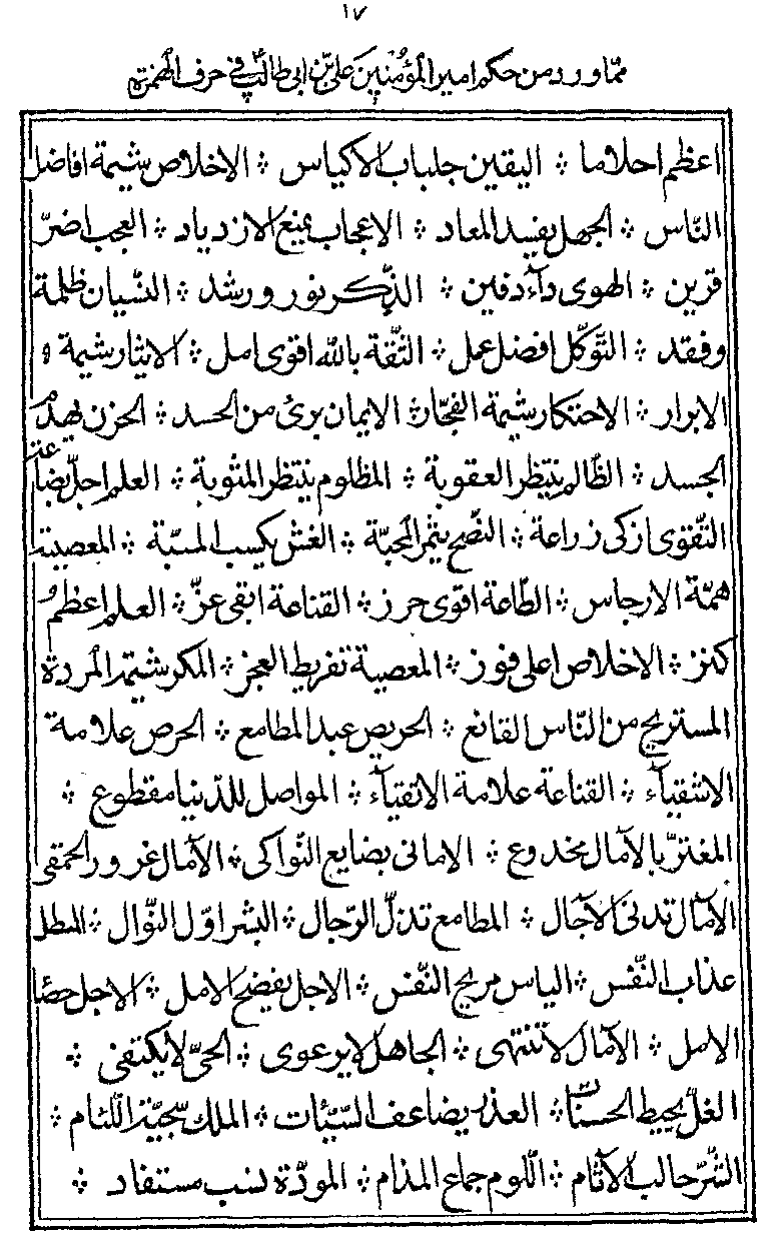 ١٧
ممّا ورد من حكم امير المؤمنين علىّ بن ابى طالب فى حرف الهمزة
اعظم احلاما ؞ اليقين جلباب الاكياس ؞ الاخلاص شيمة افاضل
النّاس ؞ الجهل يفسد المعاد ؞ الاعجاب يمنع الازدياد ؞ العجب اضرّ
قرين ؞ الهوى دآء دفين ؞ الذّكر نور ورشد ؞ النّسيان ظلمة
وفقد ؞ التّوكّل افضل عمل ؞ الثّقة بالله اقوى امل ؞ الايثار شيمة
الابرار ؞ الاحتكار شيمة الفجّار ؞ الايمان برئ من الحسد ؞ الحزن يهدم
الجسد ؞ الظّالم ينتظر العقوبة ؞ المظلوم ينتظر المثوبة ؞ العلم اجلّ بضاعة
التّقوى ازكى زراعة ؞ النّصح يثمر المحبّة ؞ الغشّ يكسب المسبّة ؞ المعصية
همّة الارجاس ؞ الطّاعة اقوى حرز ؞ القناعة ابقى عزّ ؞ العلم اعظم
كنز ؞ الاخلاص اعلى فوز ؞ المعصية تفريط العجز ؞ المكر شيمة المردة
المستريح من النّاس القانع ؞ الحريص عبد المطامع ؞ الحرص علامة
الاشقيآء ؞ القناعة علامة الاتقيآء ؞ المواصل للدّنيا مقطوع ؞
المغترّ بالآمال مخدوع ؞ الامانى بضايع النّواكى ؞ الآمال غرور الحمقى
الآمال تدنى الآجال ؞ المطامع تذلّ الرّجال ؞ البشر اوّل النّوال ؞ المطل
عذاب النّفس ؞ الياس مريح النّفس ؞ الاجل يفضح الامل ؞ الاجل حصاد
الامل ؞ الآمال لا تنتهى ؞ الجاهل لا يرعوى ؞ الحىّ لا يكتفى ؞
الغلّ يحبط الحسنات ؞ العذر يضاعف السّيّئات ؞ الملك سجيّة اللّئام ؞
الشّرّ جالب الآثام ؞ اللّوم جماع المذام ؞ المودّة نسب مستفاد ؞